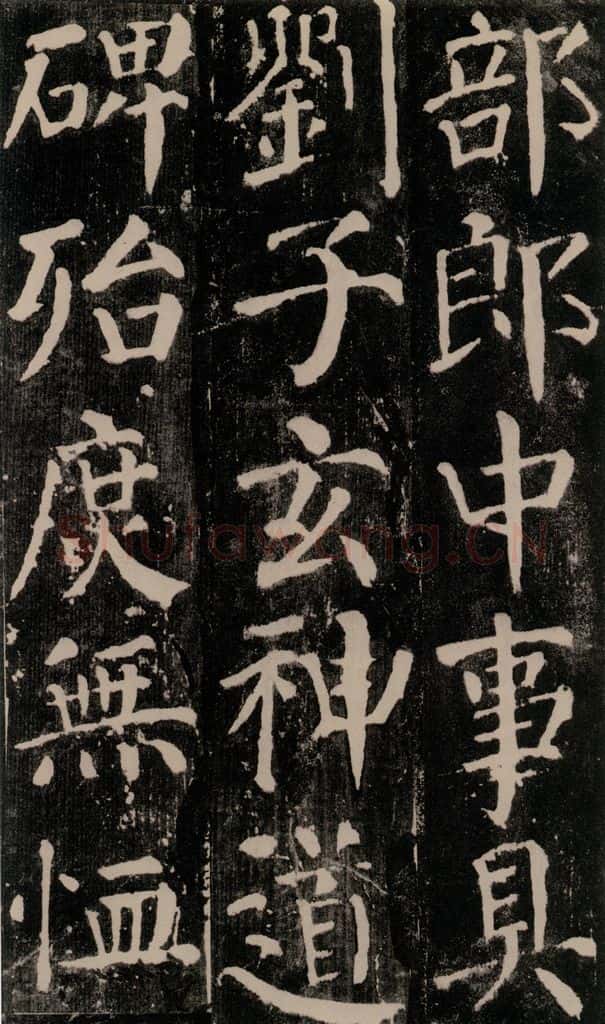 部郎中事具
劉子玄神道
碑殆庶無恤
Shufawang.CN